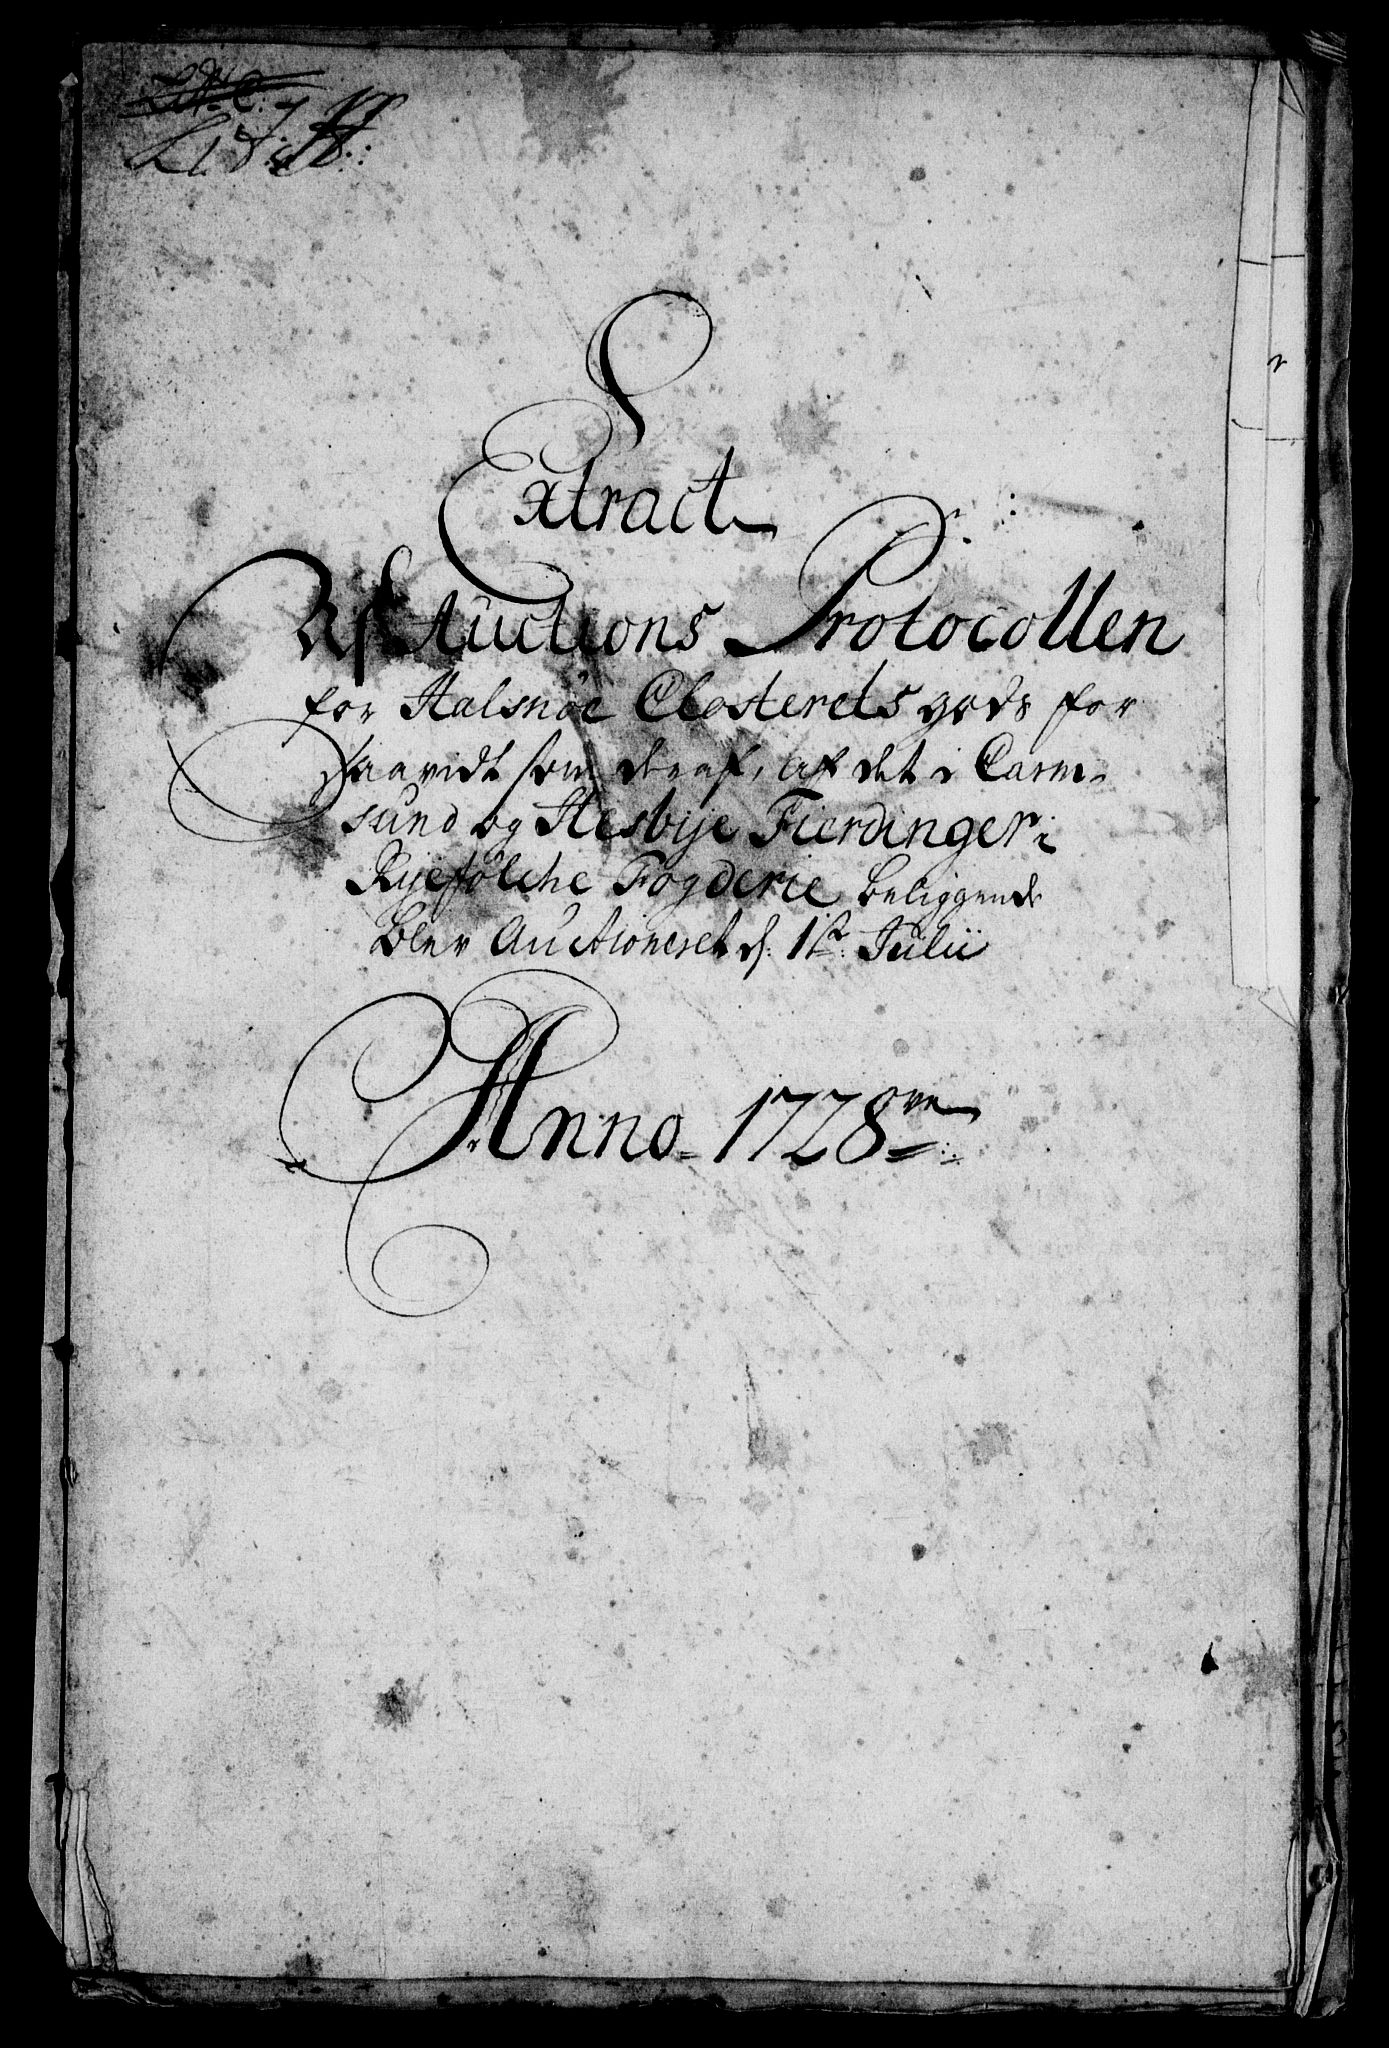 Extract
Af Auctions Protocollen
for Halsnöe Closterets gods for
saavidt som deraf, af det i Carm-
sund og Hesbije Fierdinger i
Ryefölche Fogderie beliggende
blev Auctioneret d: 1ste Julii
Anno 1728ve